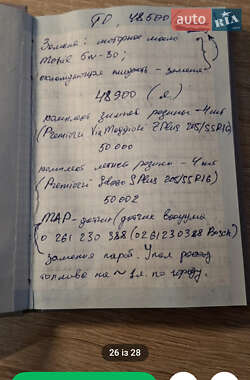 auto RIA
ТО, 48500
Замена: моторное масло
Motul 5w-30;
охлаждающая жидкость - замена
48900 (л.)
комплект зимней резины - 4шт
(Premiorri ViaMaggiore Z Plus 205/55 R16)
50 000
комплект летней резины - 4шт
(Premiorri Solazo S Plus 205/55 R16)
50002
MAP-датчик (датчик вакуума
0 261 230 388 (0261230388 Bosch)
замена . Упал расход
топлива на ~ 1л. по городу.
26 із 28